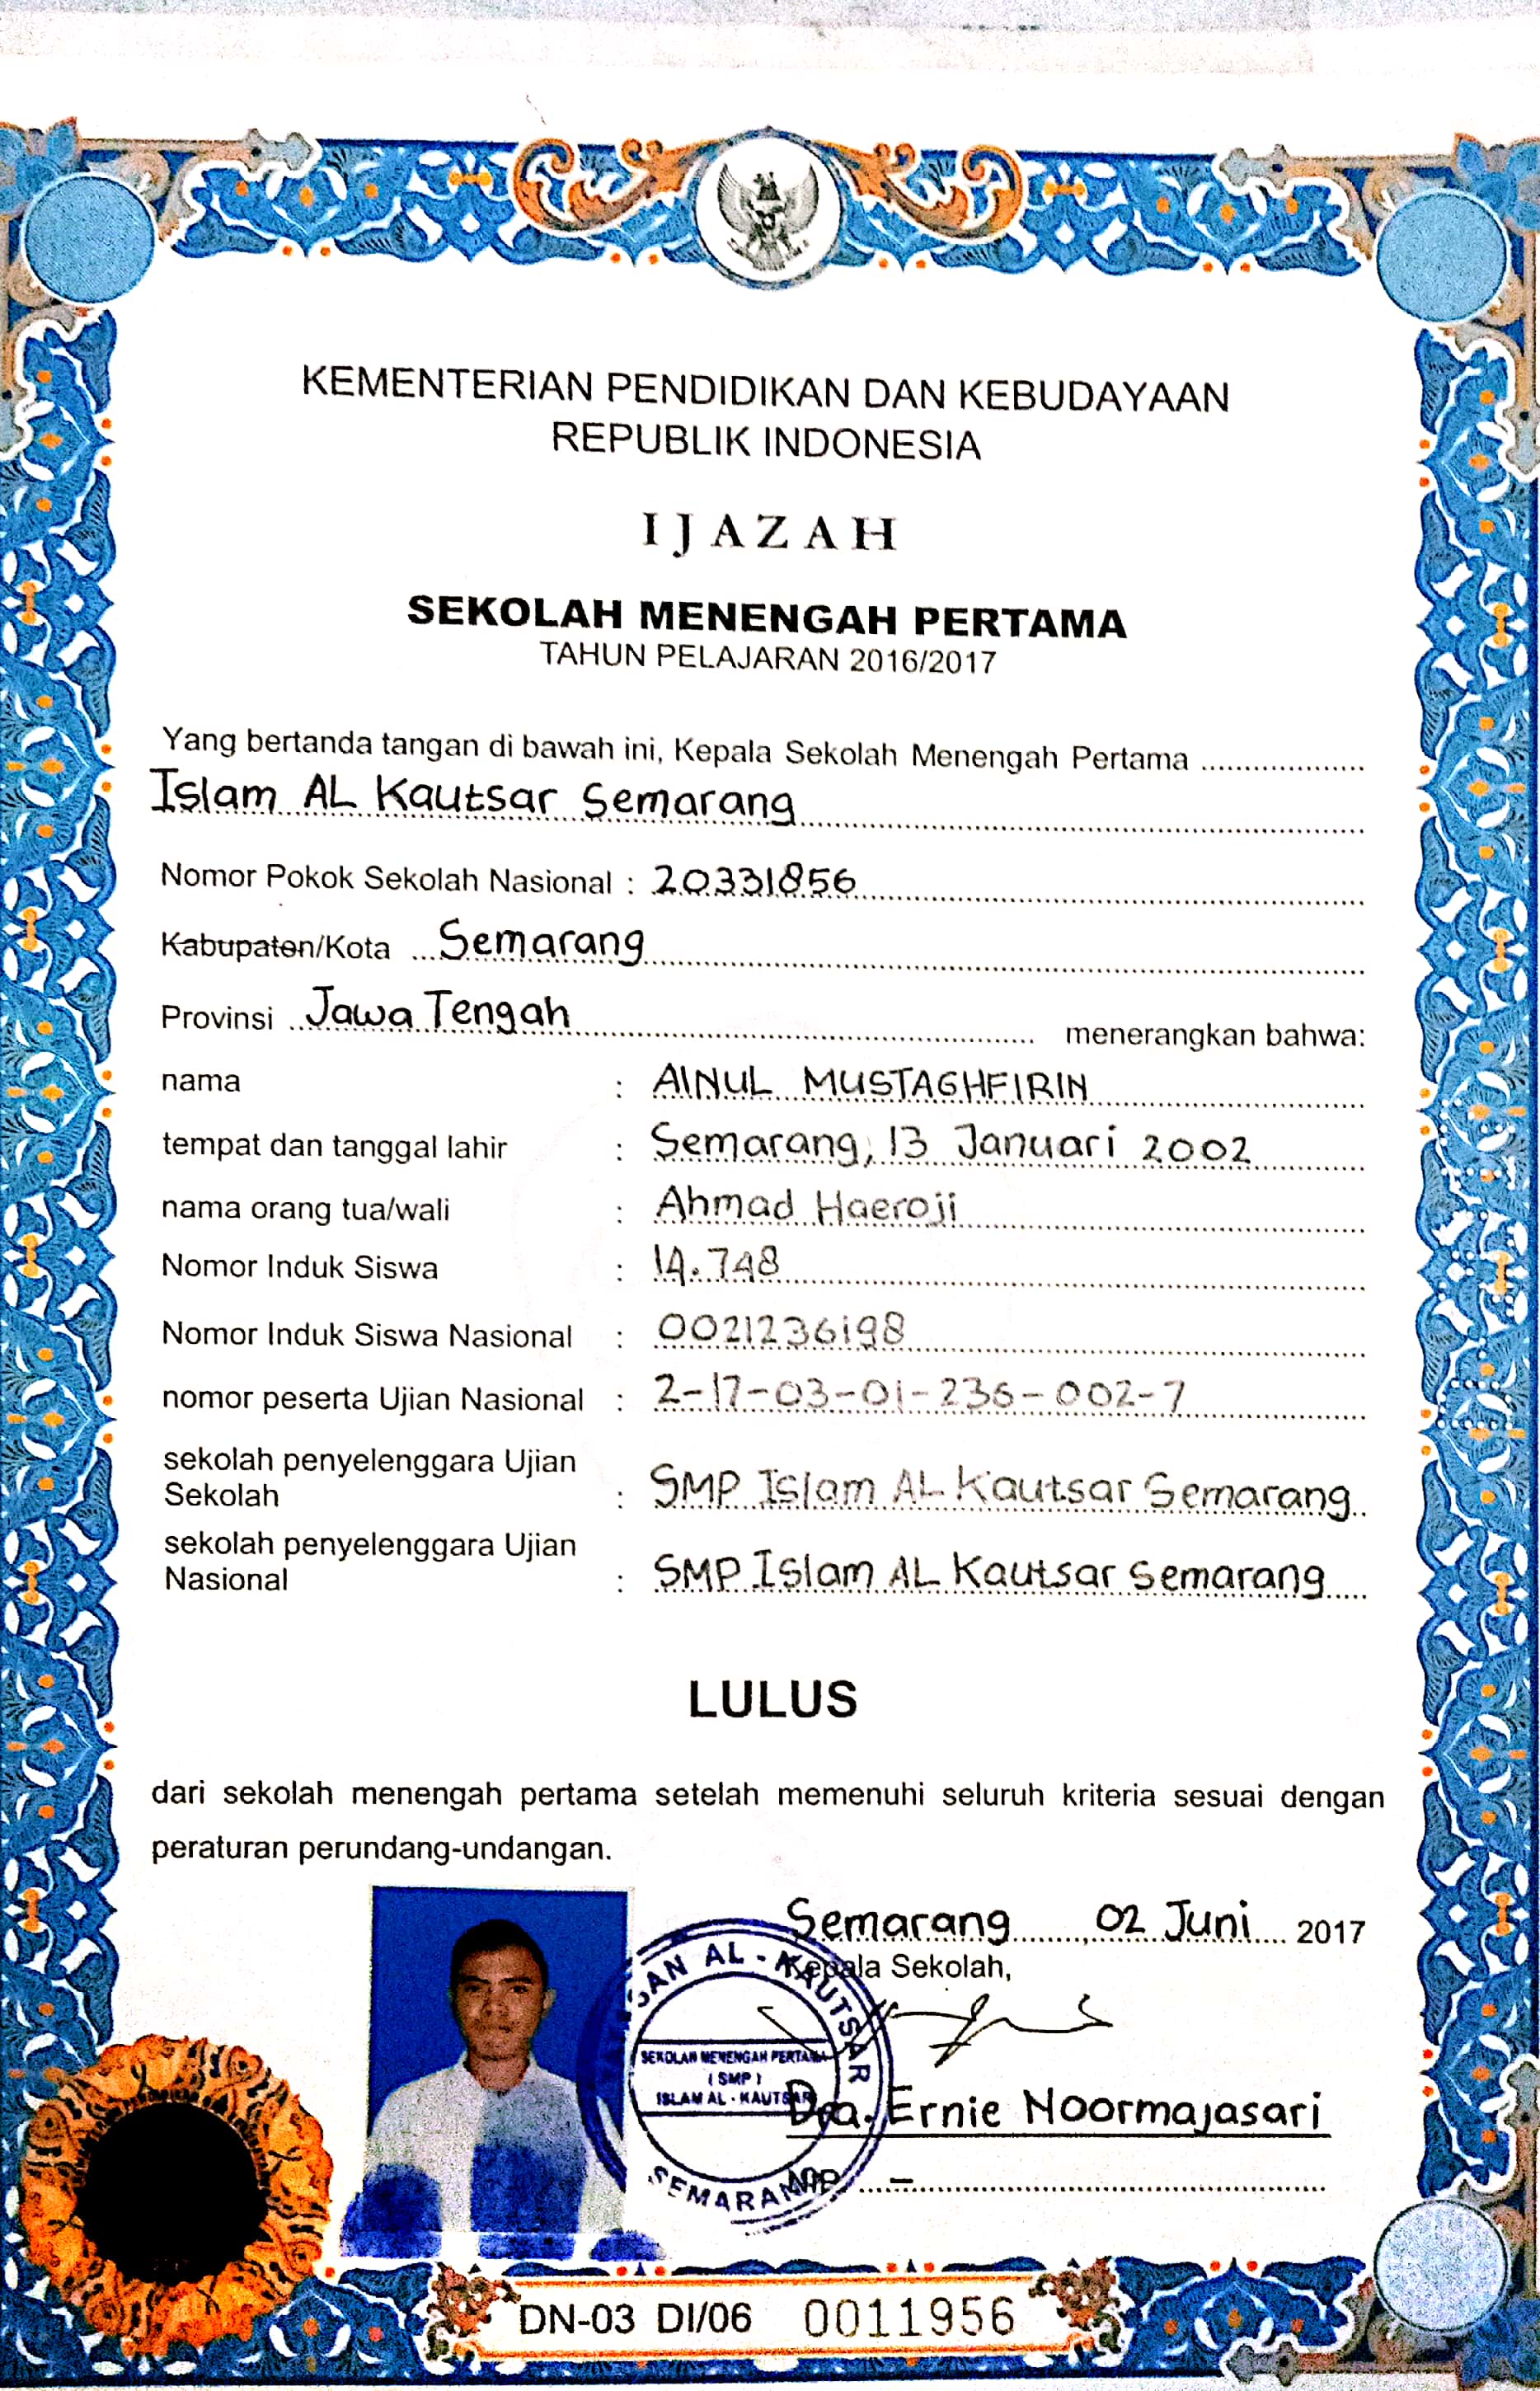 KEMENTERIAN PENDIDIKAN DAN KEBUDAYAAN
REPUBLIK INDONESIA
IJAZAH
SEKOLAH MENENGAH PERTAMA
TAHUN PELAJARAN 2016/2017
Yang bertanda tangan di bawah ini, Kepala Sekolah Menengah Pertama ...................
Islam AL Kautsar Semarang
Nomor Pokok Sekolah Nasional : 20331856
Kabupaten/Kota Semarang
Provinsi Jawa Tengah menerangkan bahwa:
nama : AINUL MUSTAGHFIRIN
tempat dan tanggal lahir : Semarang, 13 Januari 2002
nama orang tua/wali : Ahmad Haeroji
Nomor Induk Siswa : 14.748
Nomor Induk Siswa Nasional : 0021236198
nomor peserta Ujian Nasional : 2-17-03-01-236-002-7
sekolah penyelenggara Ujian
Sekolah : SMP Islam AL Kautsar Semarang
sekolah penyelenggara Ujian
Nasional : SMP Islam AL Kautsar Semarang
LULUS
dari sekolah menengah pertama setelah memenuhi seluruh kriteria sesuai dengan
peraturan perundang-undangan.
Semarang, 02 Juni 2017
Kepala Sekolah,
AL - KAUTSAR
SEKOLAH MENENGAH PERTAMA
( SMP )
ISLAM AL - KAUTSAR
SEMARANG
Dra. Ernie Noormajasari
NIP -
DN-03 DI/06 0011956